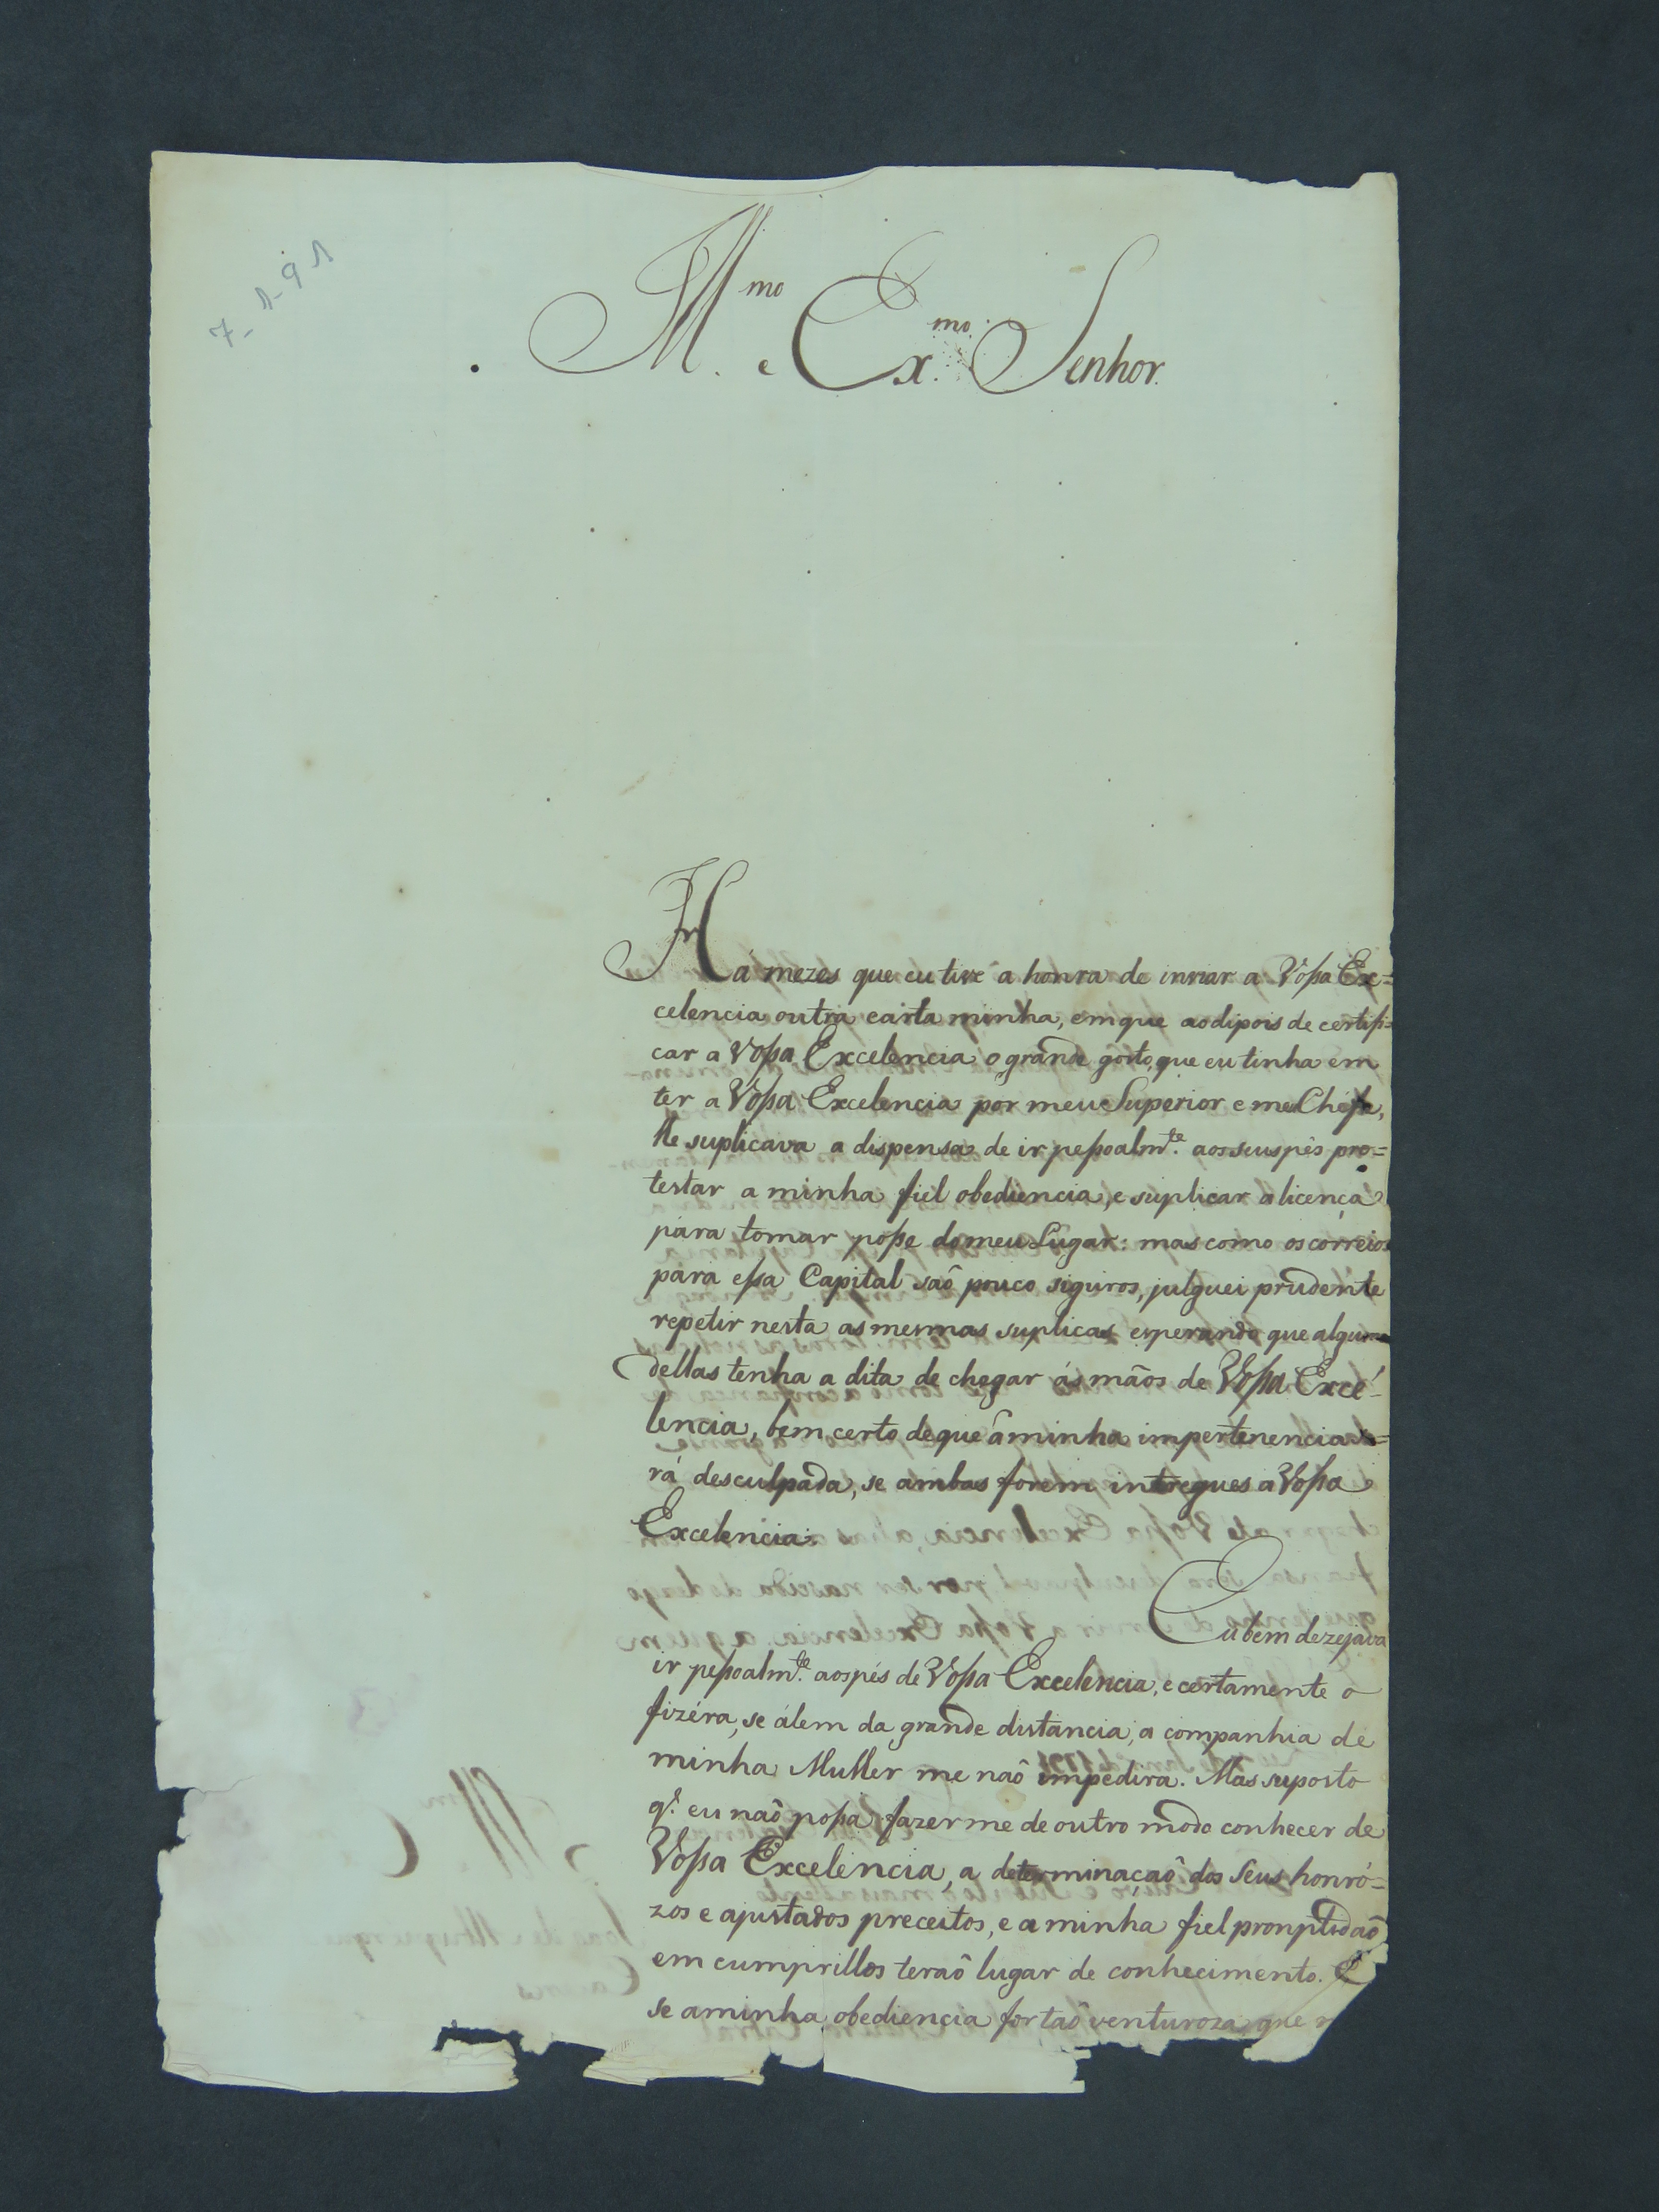 7-1-91
Illmo. e Exmo. Senhor.
Há mezes que eu tive a honra de inviar a Vossa Ex=
celencia outra carta minha, em que ao dipois de certifi=
car a Vossa Excelencia o grande gosto, que eu tinha em
ter a Vossa Excelencia por meu Superior e meu Chefe,
lhe suplicava a dispensa de ir pessoalmte. aos seus pés pro=
testar a minha fiel obediencia, e suplicar a licença
pára tomar posse do meu Lugar: mas como os correios
pára essa Capital saõ pouco siguros, julguei prudente
repetir nesta as mesmas suplicas esperando que alguma
dellas tenha a dita de chegar ás mãos de Vossa Exce=
lencia, bem certo de que a minha impertenencia se=
rá desculpada, se ambas forem intregues a Vossa
Excelencia.
Eu bem dezejava
ir pessoalmte. aos pés de Vossa Excelencia, e certamente o
fizéra, se álem da grande distancia, a companhia de
minha Mulher me naõ impedira. Mas suposto
q. eu naõ possa fazerme de outro modo conhecer de
Vossa Excelencia, a determinaçaõ dos Seus honró=
zos e ajustados preceitos, e a minha fiel promptidaõ
em cumprillos teraõ lugar de conhecimento. E
se a minha obediencia for taõ venturoza que